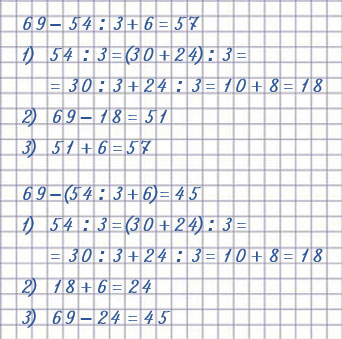 69 - 54 : 3 + 6 = 57
1) 54 : 3 = (30 + 24) : 3 =
= 30 : 3 + 24 : 3 = 10 + 8 = 18
2) 69 - 18 = 51
3) 51 + 6 = 57
69 - (54 : 3 + 6) = 45
1) 54 : 3 = (30 + 24) : 3 =
= 30 : 3 + 24 : 3 = 10 + 8 = 18
2) 18 + 6 = 24
3) 69 - 24 = 45